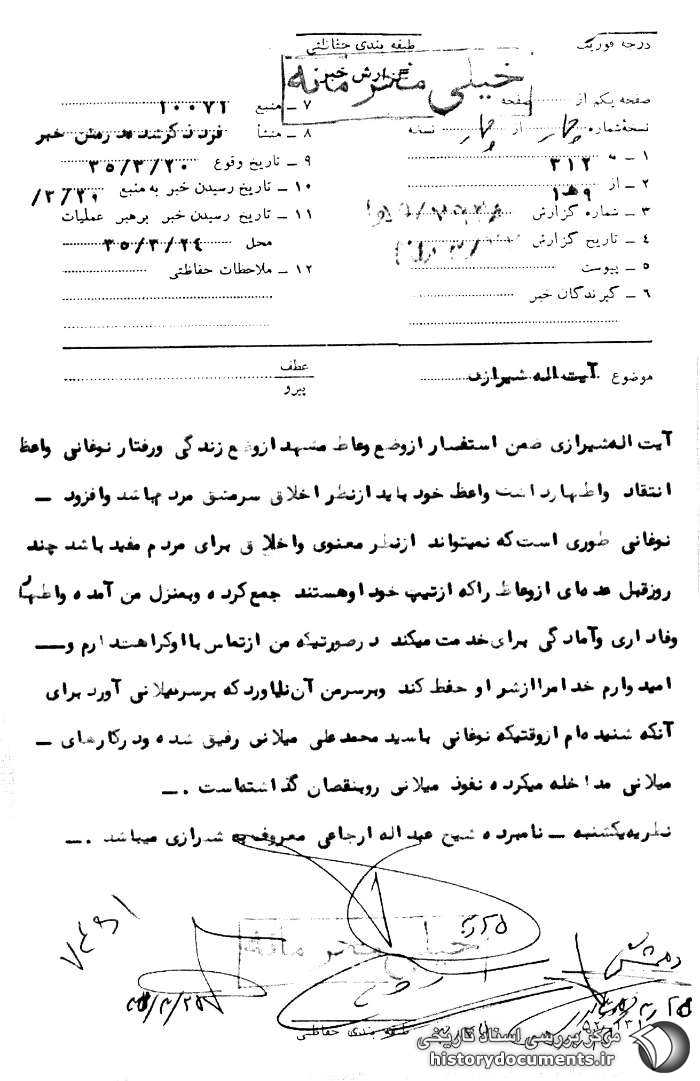 درجه فوریت
طبقه بندی حفاظتی
گزارش خبر
خیلی محرمانه
صفحه یکم از صفحه
نسخه شماره چهار از چهار نسخه
۱ ـ به ۳۱۲
۲ ـ از ۹ه۱
۳ ـ شماره گزارش
۴ ـ تاریخ گزارش
۵ ـ پیوست
۶ ـ گیرندگان خبر
۷ ـ منبع ۱۰۰۷۱
۸ ـ منشأ فرد نامبرده در متن خبر
۹ ـ تاریخ وقوع ۳۵/۳/۲۰
۱۰ ـ تاریخ رسیدن خبر به منبع
۱۱ ـ تاریخ رسیدن خبر برهبر عملیات
محل ۳۵/۳/۲۴
۱۲ ـ ملاحظات حفاظتی
موضوع آیت اله شیرازی
عطف
پیرو
آیت اله شیرازی ضمن استفسار از وضع وعاظ مشهد از وضع زندگی ورفتار نوغانی واعظ
انتقاد واظهار داشت واعظ خود باید ازنظر اخلاق سرمشق مردم باشد وافزود ـ
نوغانی طوری است که نمیتواند ازنظر معنوی واخلاق برای مردم مفید باشد چند
روزقبل عده‌ای ازوعاظ راکه ازتیپ خود او هستند جمع کرده وبمنزل من آمده واظهار
وفاداری وآمادگی برای خدمت میکند درصورتیکه من ازتماس با او کراهت دارم و ـ
امیدوارم خدا مرا ازشر او حفظ کند وبرسرمن آن نیاورد که برسر میلانی آورد برای
آنکه شنیده‌ام ازوقتیکه نوغانی باسید محمدعلی میلانی رفیق شده ودرکارهای ـ
میلانی مداخله میکرده نفوذ میلانی روبنقصان گذاشته است . ـ
نظریه یکشنبه ـ نامبرده شیخ عبداله ارجاعی معروف به شیرازی میباشد . ـ
خیلی محرمانه
طبقه بندی حفاظتی
مرکز بررسی اسناد تاریخی
historydocuments.ir